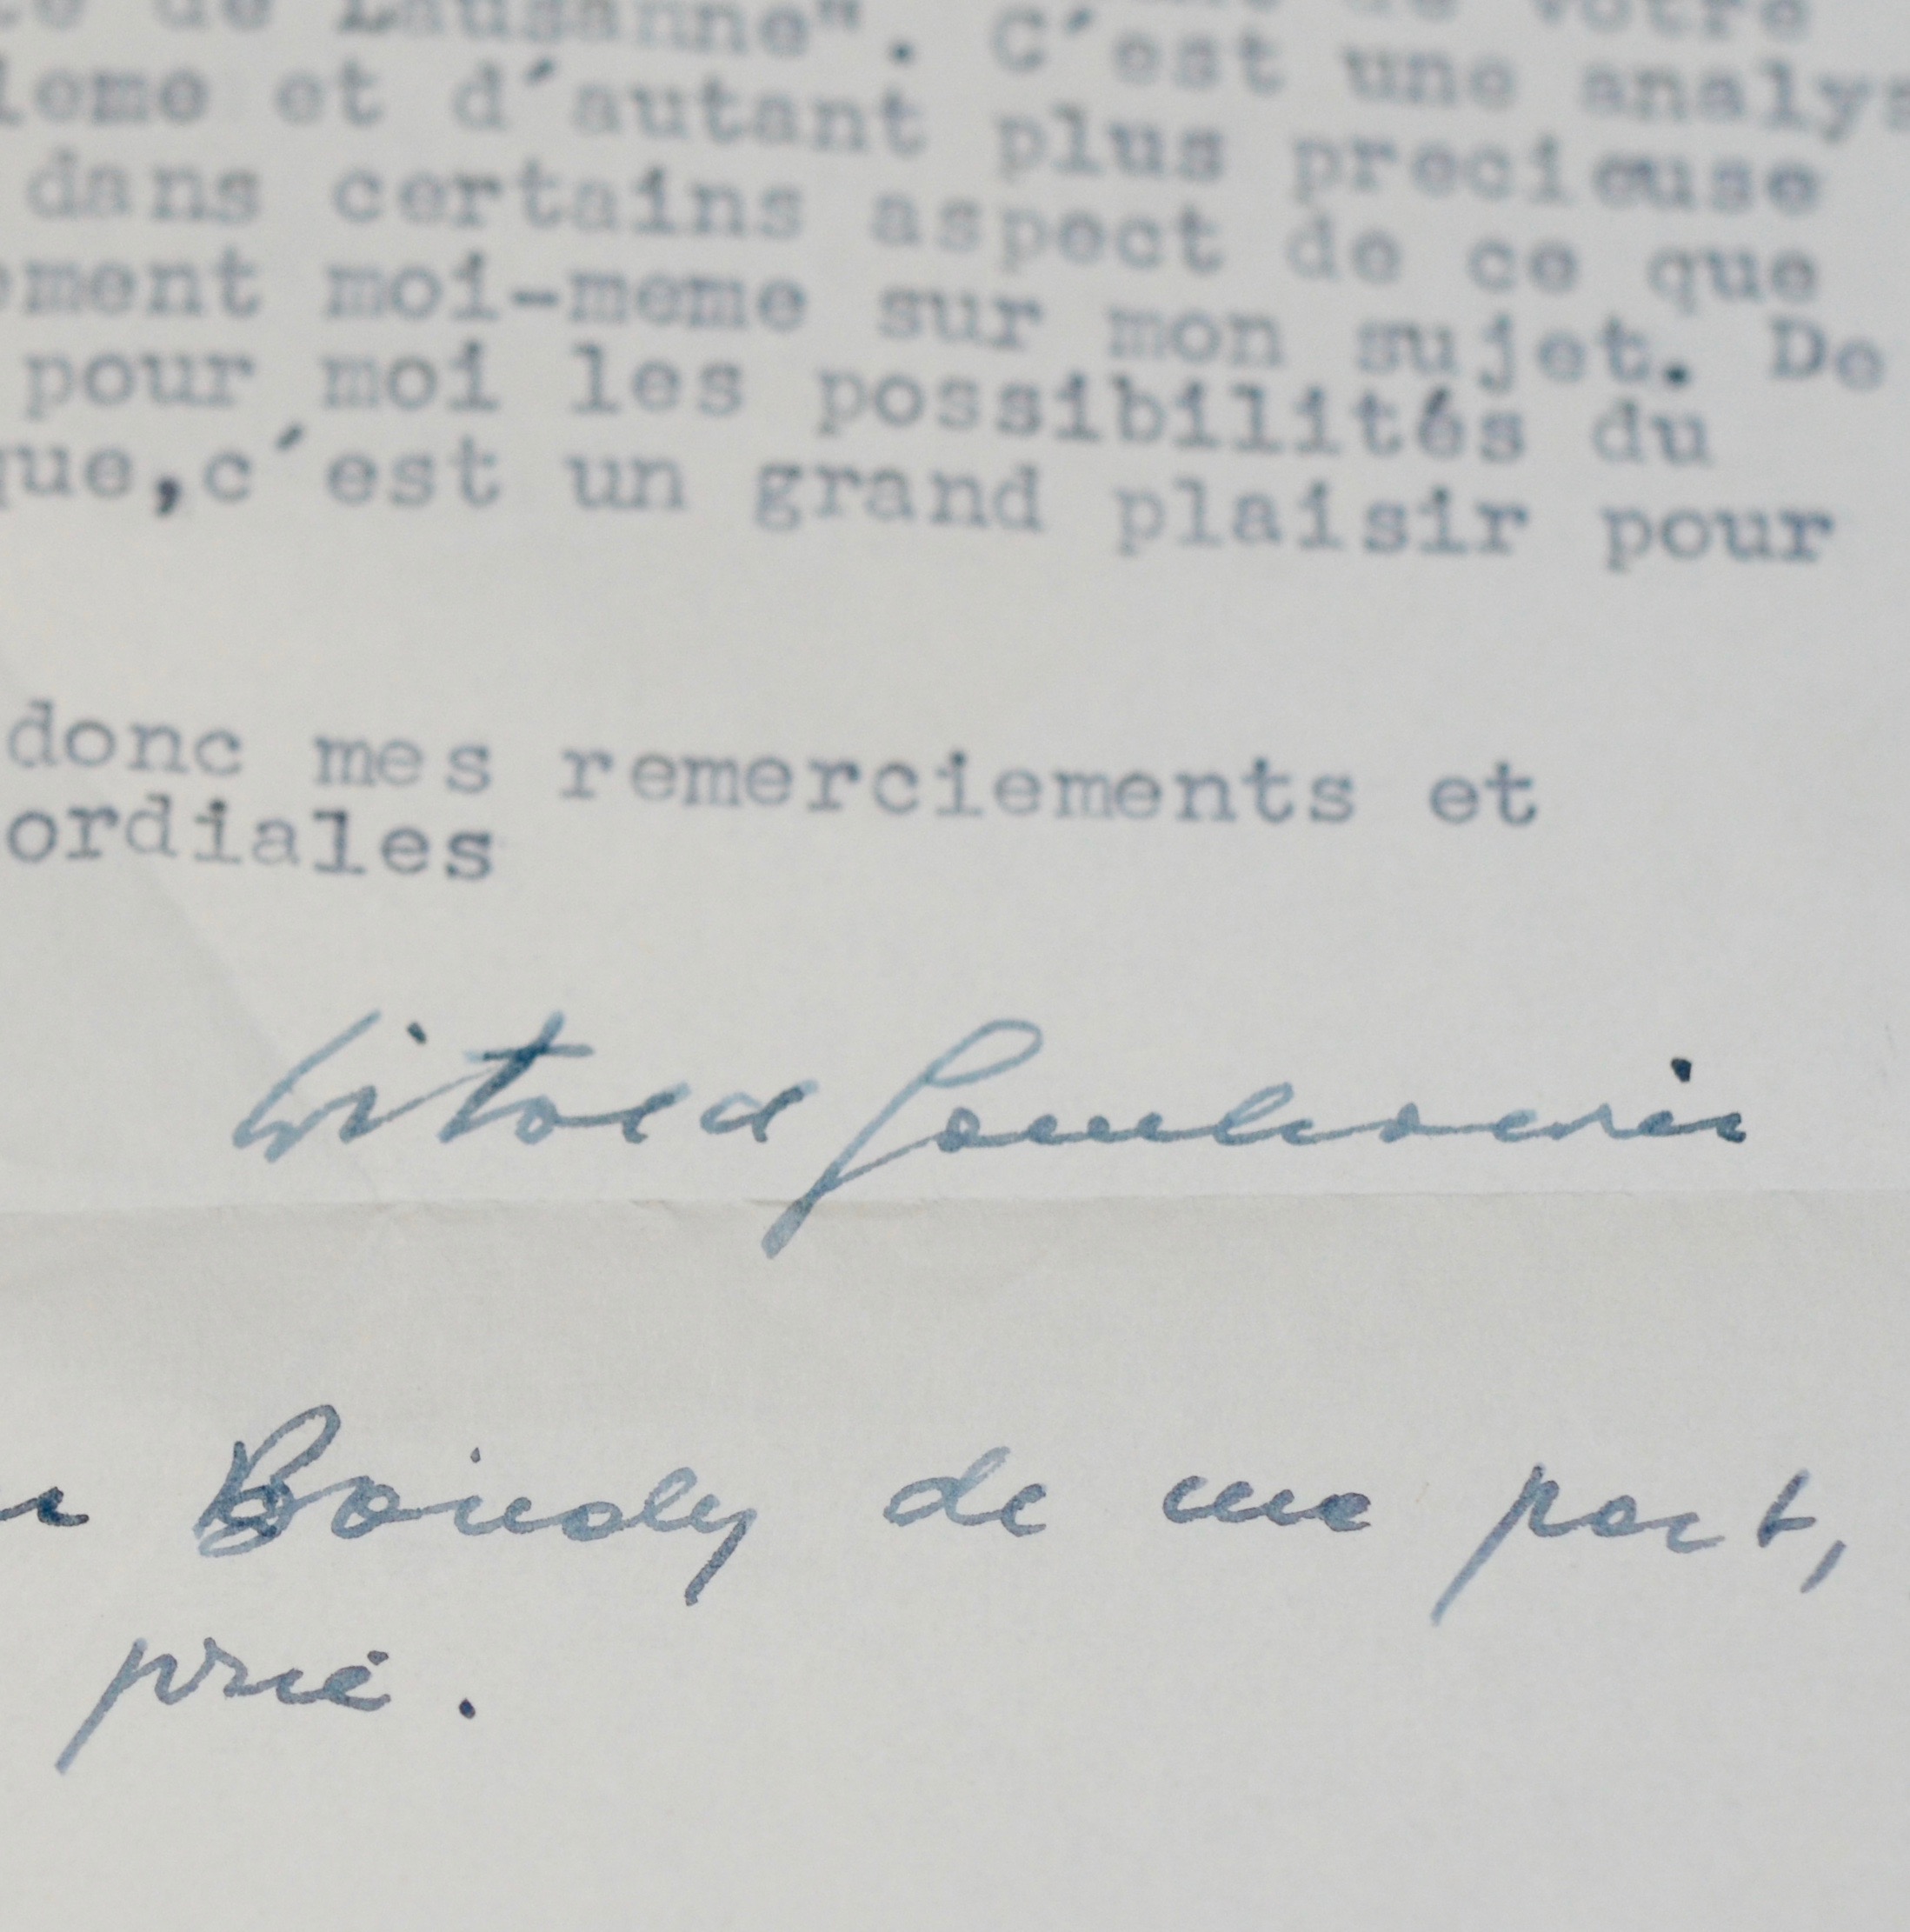 de Lausanne". C'est une analys
leme et d'autant plus precieuse
dans certains aspect de ce que
ement moi-meme sur mon sujet. De
pour moi les possibilités du
que,c'est un grand plaisir pour
donc mes remerciements et
ordiales
Witold Gombrowicz
Bondy de ma part,
prie.